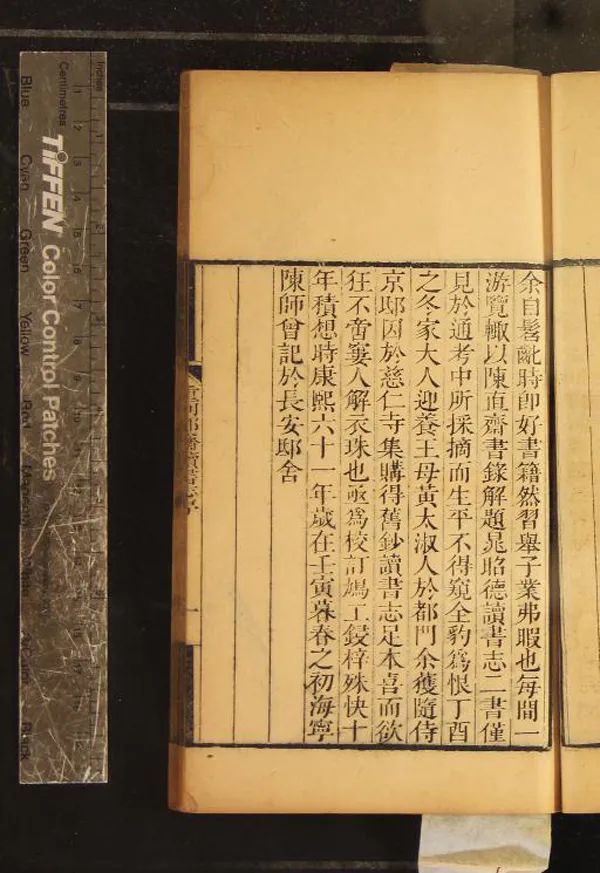 余自髫齔時即好書籍然習舉子業弗暇也每間一
游覽輙以陳直齋書錄解題晁昭德讀書志二書僅
見於通考中所採摘而生平不得窺全豹爲恨丁酉
之冬家大人迎養王母黃太淑人於都門余獲隨侍
京邸因於慈仁寺集購得舊鈔讀書志足本喜而欲
狂不啻窶人解衣珠也亟爲校訂鳩工鋟梓殊快十
年積想時康熙六十一年歲在壬寅暮春之初海寧
陳師曾記於長安邸舍
一
Inches
Centimetres
TIFFEN Color Control Patches
Blue
Cyan
Green
Yellow
Red
Black